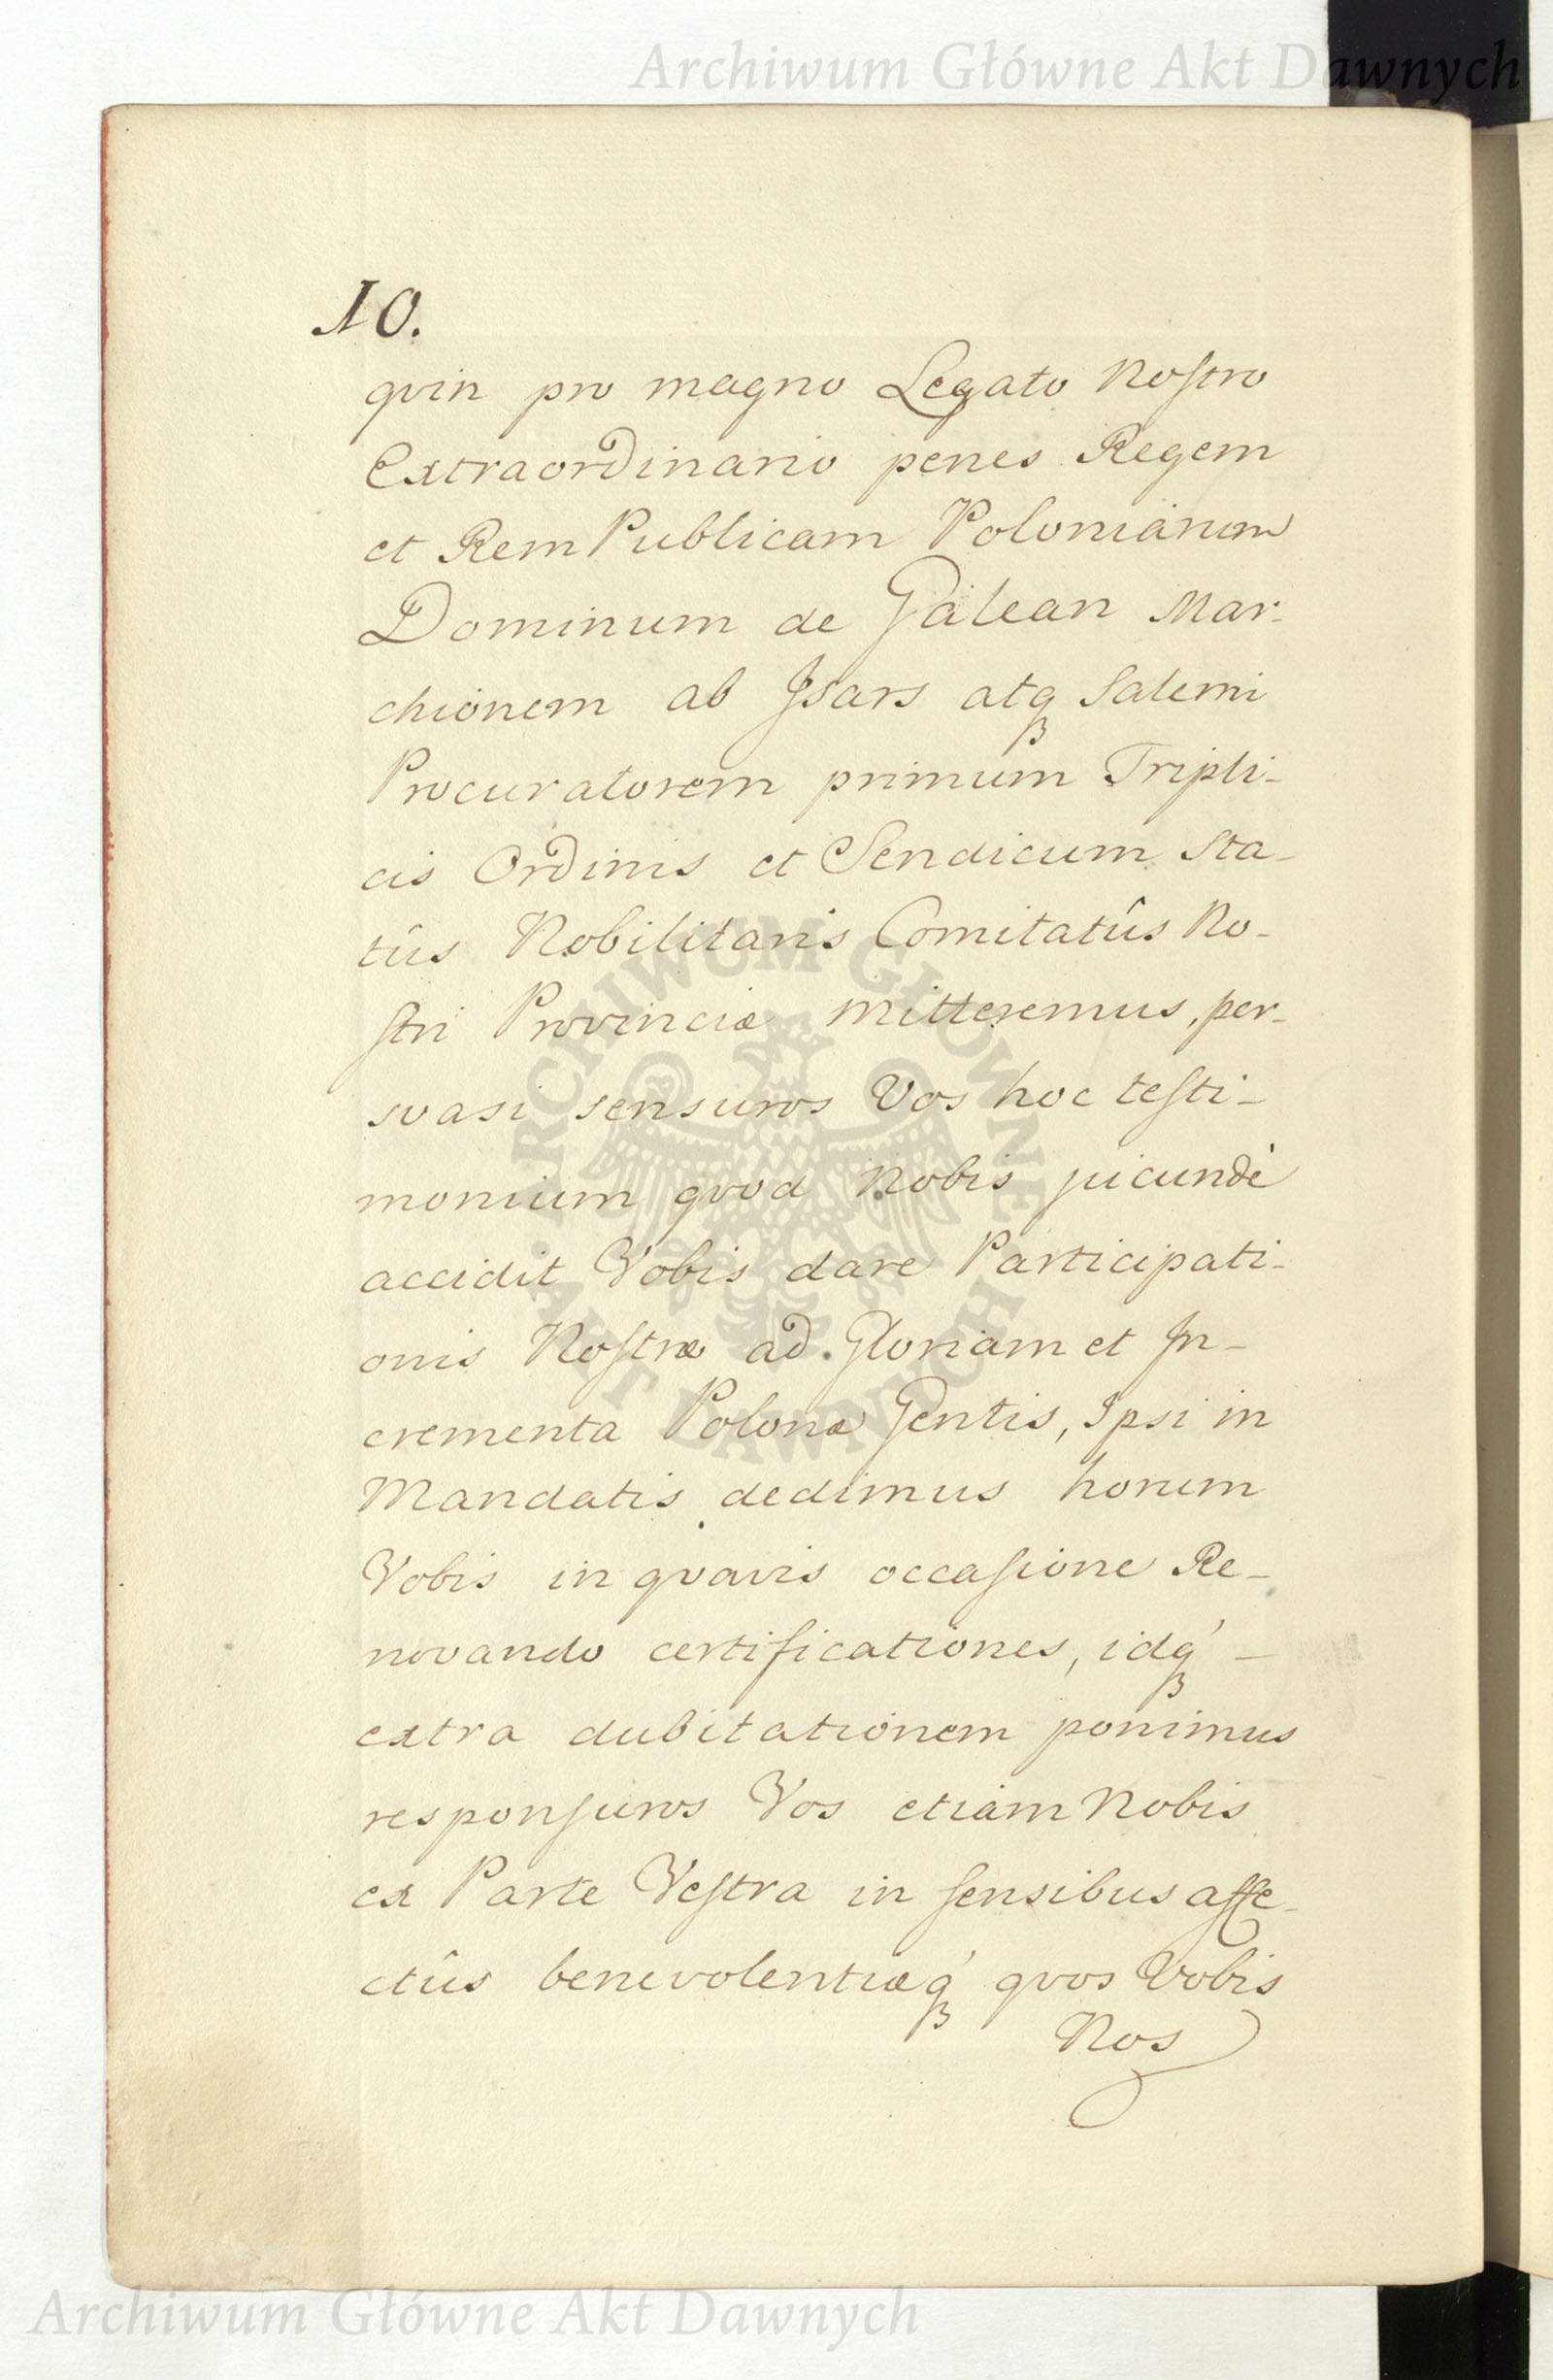 Archiwum Główne Akt Dawnych
10.
qvin pro magno Legato Noſtro
Extraordinario penes Regem
et Rem Publicam Polonianam
Dominum de Galean Mar-
chionem ab Jsars atqꝫ Salerni
Procuratorem primum Tripli-
cis Ordinis et Sendicum Sta-
tûs Nobilitaris Comitatûs No-
ſtri Provinciæ mitteremus, per-
svasi sensuros Vos hoc teſti-
monium qvod Nobis jucundè
accidit Vobis dare Participati-
onis Noſtræ ad Gloriam et Jn-
crementa Polonæ Gentis, Ipsi in
Mandatis dedimus horum
Vobis in qvavis occaſione Re-
novando certificationes, idqꝫ́ -
extra dubitationem ponimus
responſuros Vos etiam Nobis
ex Parte Veſtra in ſensibus affe-
ctûs benevolentiæqꝫ́ qvos Vobis
Nos
ARCHIWUM GŁÓWNE AKT DAWNYCH
Archiwum Główne Akt Dawnych